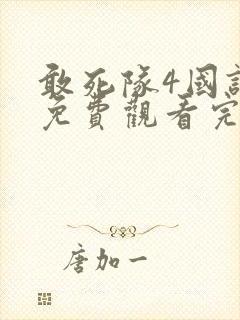 敢死隊4國
免費觀看完
唐加一